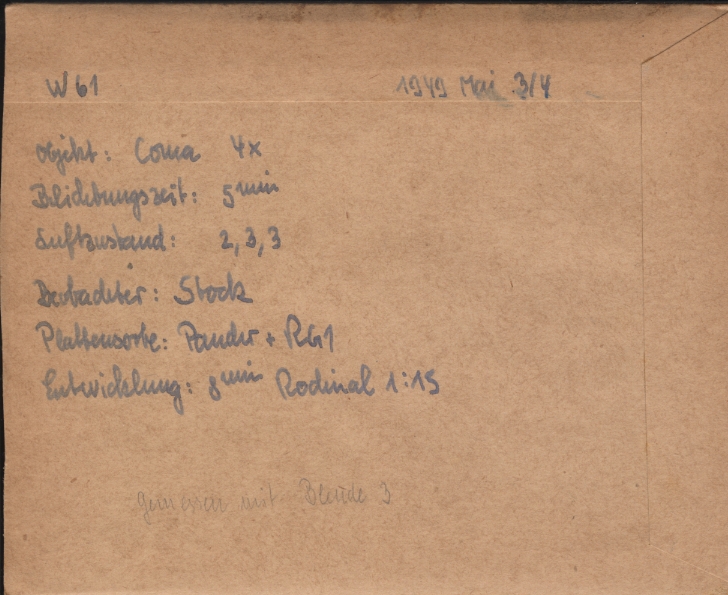 W 61 1949 Mai 3/4
Objekt: Coma 4x
Belichtungszeit: 5 min
Luftzustand: 2, 3, 3
Beobachter: Stock
Plattensorte: Panchr + RG1
Entwicklung: 8 min Rodinal 1:15
gemessen mit Blende 3